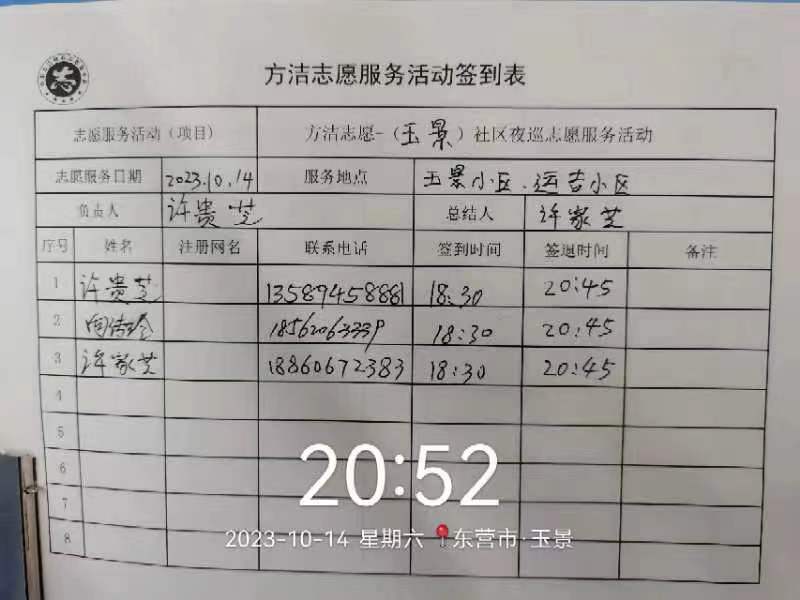 志
方洁志愿服务活动签到表
志愿服务活动（项目） 方洁志愿-（玉景）社区夜巡志愿服务活动
志愿服务日期 2023.10.14 服务地点 玉景小区.运吉小区
负责人 许贵芝 总结人 许家芝
序号 姓名 注册网名 联系电话 签到时间 签退时间 备注
1 许贵芝 13589458881 18:30 20:45
2 18562063339 18:30 20:45
3 许家芝 18860672383 18:30 20:45
4
5
6
7
8
20:52
2023-10-14 星期六 东营市·玉景